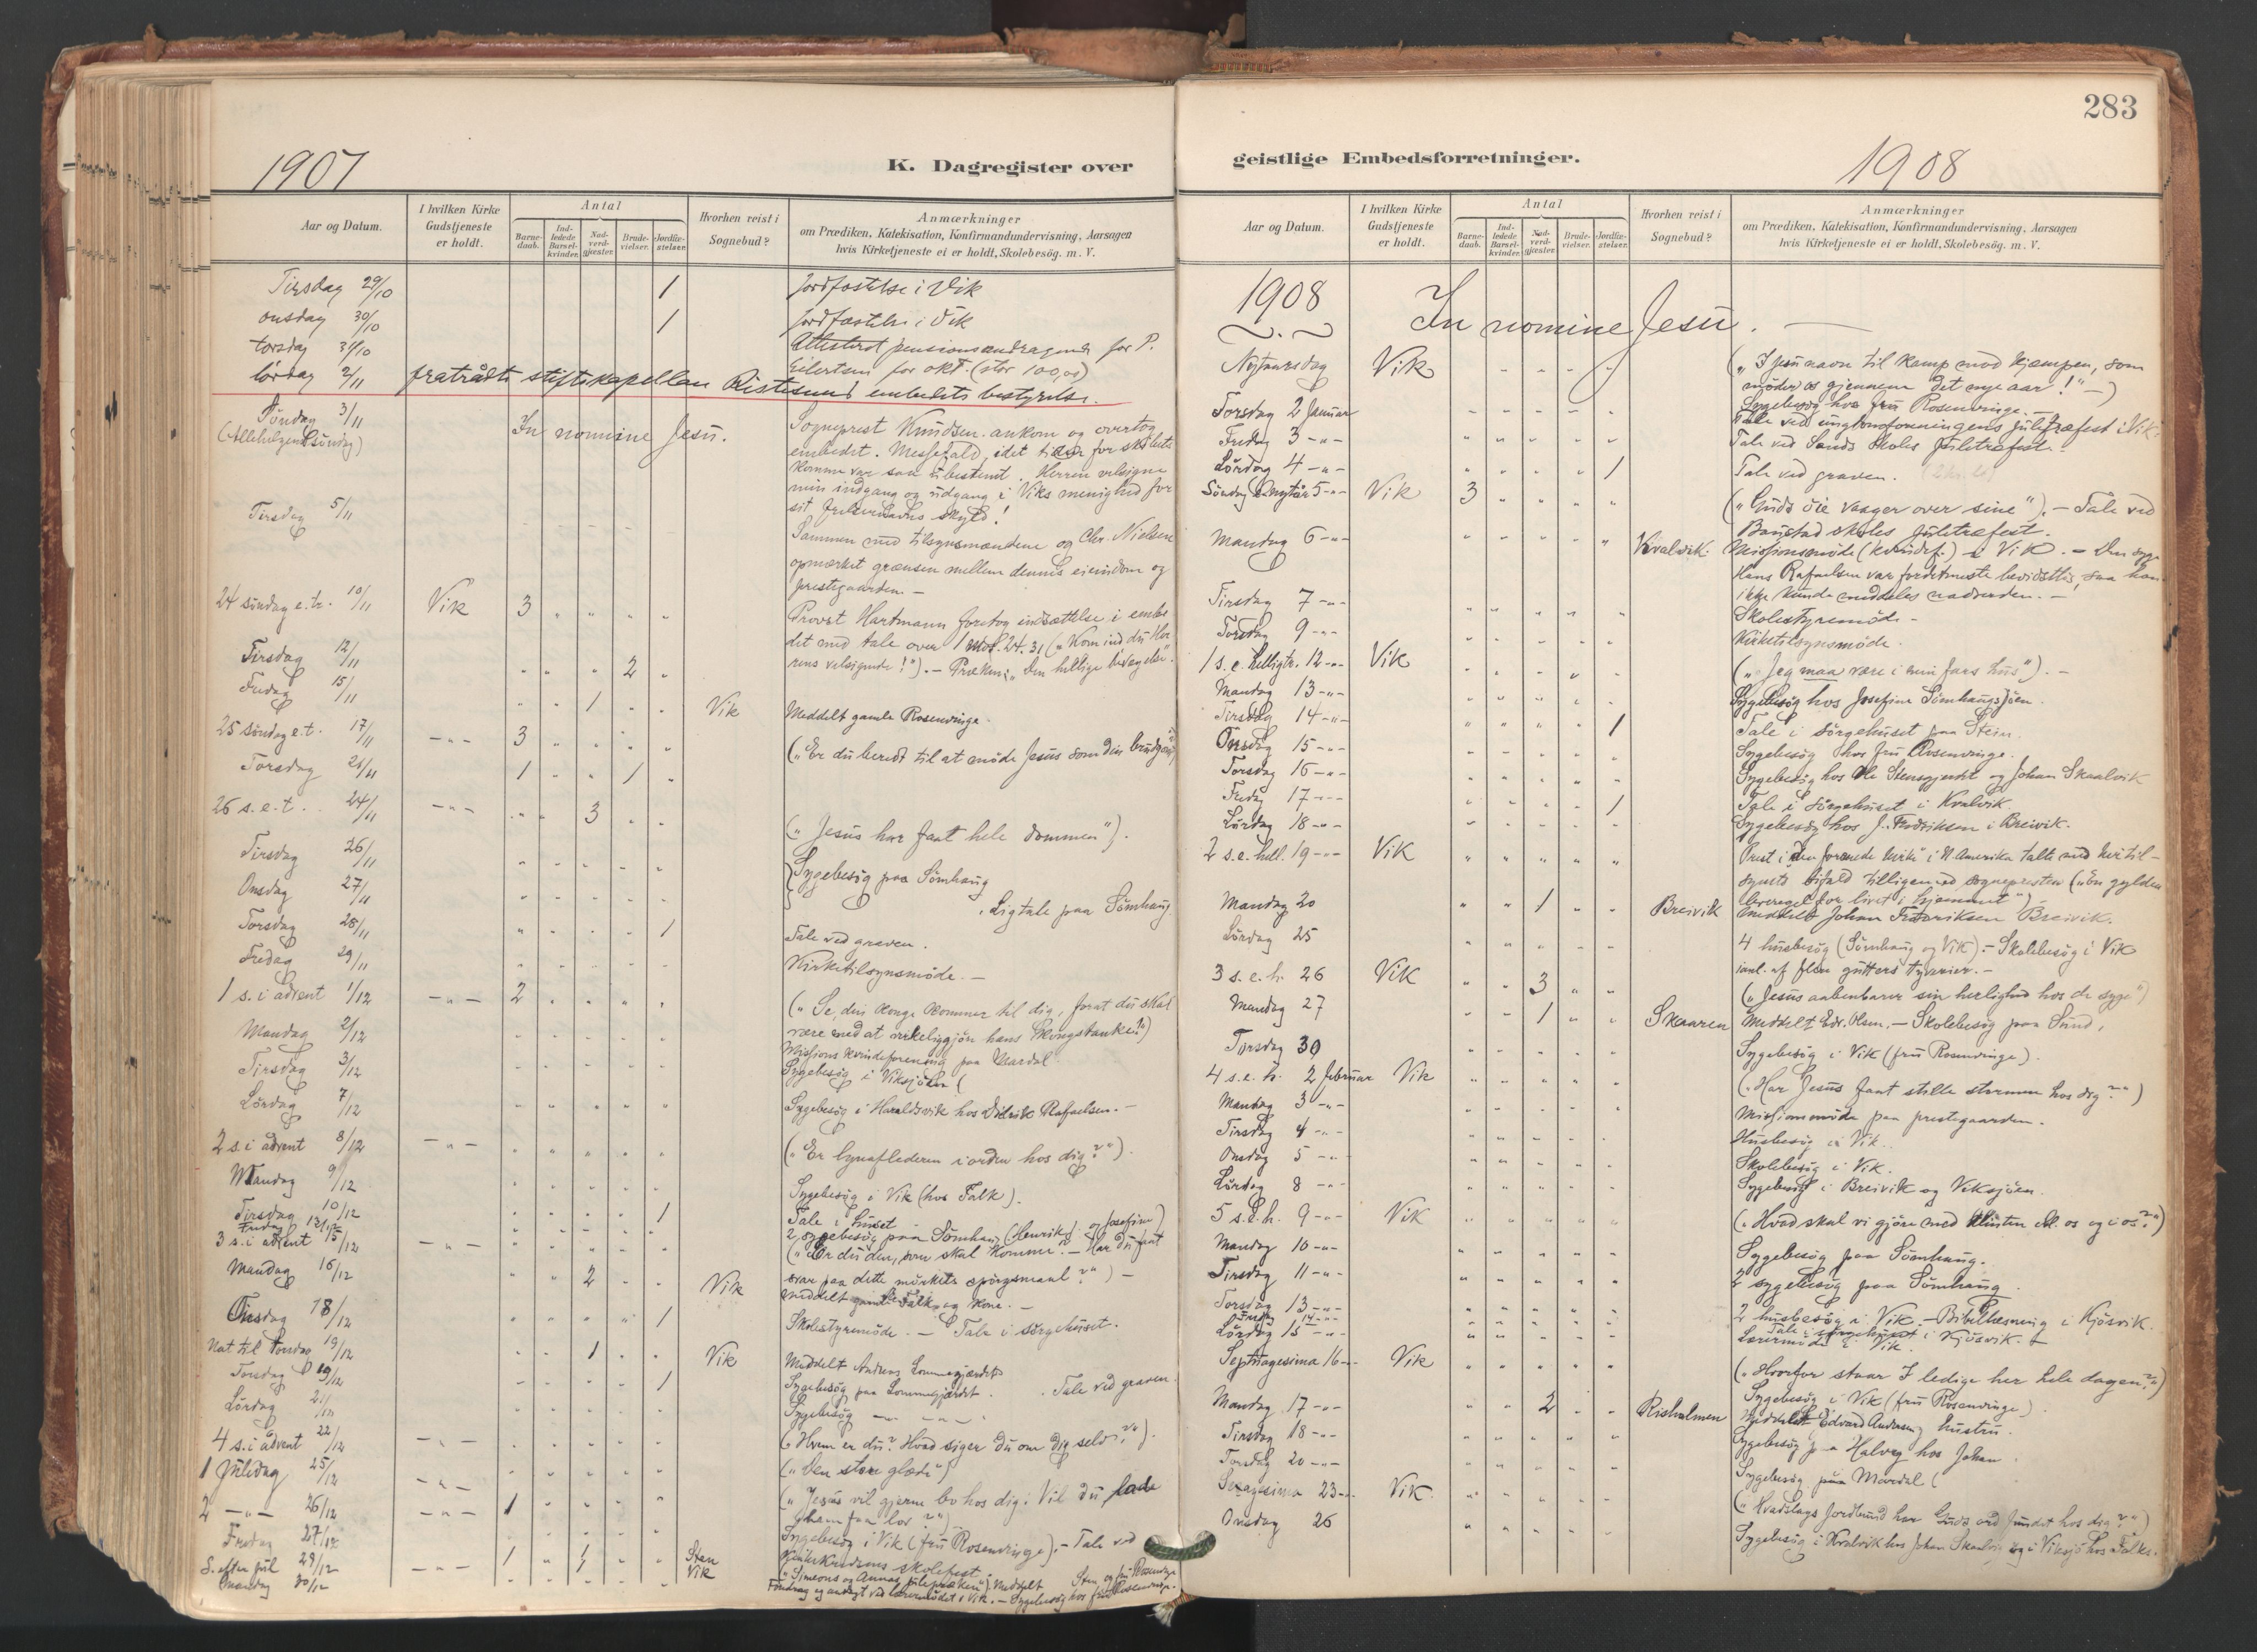 283
1907
K. Dagregister over
Aar og Datum.
I hvilken Kirke Gudstjeneste er holdt.
Antal
Barne-daab.
Ind-ledede Barsel-kvinder.
Nad-verd-gjester
Brude-vielser.
Jordfæ-stelser.
Hvorhen reist i Sognebud?
Anmærkninger
om Prædiken, Katekisation, Konfirmandundervisning, Aarsagen
hvis Kirketjeneste ei er holdt, Skolebesög. m. V.
Tirsdag 29/10 1 Jordfæstelse i Vik
onsdag 30/10 1 Jordfæstelse i Vik
torsdag 31/10 Attesteret pensionsandragende for P.
Eilertsen for okt. (stor 100,00)
lørdag 2/11 fratrådte stiftskapellan Ristesund embedets bestyrelse.
Söndag 3/11 In nomine Jesu. Sogneprest Knudsen ankom og overtog
(Allehelgenssöndag) embedet. Messefald, idet tiden for
komme var saa ubestemt. Herren velsigne
min indgang og udgang i Viks menighed for
sit skyld!
Tirsdag 5/11 Sammen med tilsynsmændene og Chr. Nielsen
opmerket grænsen mellem dennes eiendom og
prestegaarden. —
24 söndag e. tr. 10/11 Vik 3 Provst Hartmann foretog indsættelse i embe
det med tale over 1 Mos. 24. 31 („Kom ind du Her
rens velsignede!"). — Præken: „Den hellige bevægelse".
Tirsdag 12/11 2
Fredag 15/11 1 Vik Meddelt gamle Rosenvinge.
25 söndag e. t. 17/11 — " — 3 („Er du beredt til at möde Jesus som din brudgom")
Torsdag 21/11 1 1
26 s. e. t. 24/11 — " — 3 („Jesus har faat hele dommen").
Tirsdag 26/11 Sygebesög paa Sömhaug
Onsdag 27/11
Torsdag 28/11 1 Tale ved graven. Ligtale paa Sömhaug
Fredag 29/11 Kirketilsynsmöde. —
1 s. i advent 1/12 — " — 2 („Se, din konge kommer til dig, forat du skal
være med at virkeliggjöre hans kongstanke!")
Mandag 2/12 Missionskvindeforening paa Mardal
Tirsdag 3/12 Sygebesög i Viksjöen
Lördag 7/12 Sygebesög i Haraldsvik hos Didrik Rafaelsen. —
2 s. i advent 8/12 — " — („Er lynaflederen i orden hos dig?").
Mandag 9/12 Sygebesög i Vik (hos Falk).
Tirsdag 10/12 1 Tale i huset
Fredag 13/12 2 sygebesög paa Sömhaug (Henrik og Josefine)
3 s. i advent 15/12 — " — („Er du den, som skal komme? — Har du faat
svar paa dette mörkets spörgsmaal?") —
Mandag 16/12 2 Vik Meddelt gamle Falk og kone. —
Onsdag 18/12 1 Skolestyremöde. — Tale i sörgehuset.
Nat til Torsdag 19/12 1 Vik Meddelt Andreas Lommegjærdet
Torsdag 19/12 1 Sygebesög paa Lommegjærdet. Tale ved graven.
Lördag 21/12 Sygebesög — " —
4 s. i advent 22/12 — " — („Hvem er du? Hvad siger du om dig selv?").
1 Juledag 25/12 — " — („Den store glæde")
2 — " — 26/12 — " — 1 („Jesus vil gjerne bo hos dig: Vil du lade
ham faa lov?")
Fredag 27/12 Sygebesög i Vik (fru Rosenvinge). — Tale ved
skolefest.
S. efter jul 29/12 — " — 1 Sten Vik („Simeons og Annas julepræken"). Meddelt Sten og fru Rosenvinge
Mandag 30/12 Foredrag og andagt ved lærermödet i Vik. — Sygebesög hos fru Rosenvinge.
geistlige Embedsforretninger.
1908
Aar og Datum.
I hvilken Kirke Gudstjeneste er holdt.
Antal
Barne-daab.
Ind-ledede Barsel-kvinder.
Nad-verd-gjester
Brude-vielser.
Jordfæ-stelser.
Hvorhen reist i Sognebud?
Anmærkninger
om Prædiken, Katekisation, Konfirmandundervisning, Aarsagen
hvis Kirketjeneste ei er holdt, Skolebesög. m. V.
1908 In nomine Jesu. —
Nytaarsdag Vik („I Jesu navn til kamp mod kjæmpen, som
möder os gjennem det nye aar!" —)
Torsdag 2 Januar Sygebesög hos fru Rosenvinge. —
Fredag 3 - " - Tale ved ungdomsforeningens juletræfest i Vik.
Lördag 4 - " - 1 Tale ved Sands skoles juletræfest.
Tale ved graven.
Söndag e. nytår 5 - " - Vik 3 („Guds öie vaager over sine"). — Tale ved
Baustad skoles juletræfest.
Mandag 6 - " - Kvalvik. Missionsmöde (kvindef.) i Vik. — Den syge
Hans Rafaelsen var fordetmeste bevidstlös, saa han
ikke kunde meddeles nadverden. —
Tirsdag 7 - " - Skolestyremöde —
Torsdag 9 - " - Kirketilsynsmöde.
1 s. e. helligtr. 12 - " - Vik („Jeg maa være i min fars hus"). —
Mandag 13 - " - Sygebesög hos Josefine Sömhaugsjöen.
Tirsdag 14 - " - 1 Tale i sörgehuset paa Stein.
Onsdag 15 - " - Sygebesög hos fru Rosenvinge.
Torsdag 16 - " - Sygebesög hos Ole Stensgjerdet og Johan Skaalvik
Fredag 17 - " - 1 Tale i sörgehuset i Kvalvik.
Lördag 18 - " - Sygebesög hos J. Fredriksen i Breivik.
2 s. e. hell. 19 - " - Vik Prest i „Den forenede kirke" i N. Amerika talte med kirketil-
synets bifald tilligemed sognepresten („En gylden
leveregel for livet i hjemmet") —
Mandag 20 1 Breivik Meddelt Johan Fredriksen Breivik.
Lördag 25 4 husbesög (Sömhaug og Vik). — Skolebesög i Vik
ianl. af flere gutters tyverier. —
3 s. e. h. 26 Vik 3 („Jesus aabenbarer sin herlighed hos de syge")
Mandag 27 1 Skaaren Meddelt Edv. Olsen. — Skolebesög paa Sund.
Torsdag 30 Sygebesög i Vik (fru Rosenvinge).
4 s. e. h. 2 februar Vik („Har Jesus faat stille stormen hos dig?")
Mandag 3 - " - Missionsmöde paa prestegaarden.
Tirsdag 4 - " - Husbesög i Vik.
Onsdag 5 - " - Skolebesög i Vik.
Lördag 8 - " - Sygebesög i Breivik og Viksjöen.
5 s. e. h. 9 - " - Vik („Hvad skal vi gjöre med klinten bl. os og i os?")
Mandag 10 - " - Sygebesög paa Sömhaug.
Tirsdag 11 - " - 2 sygebesög paa Sömhaug.
Torsdag 13 - " - 2 husbesög i Vik. — Bibellæsning i Kjösvik.
Fredag 14 - " - Tale i sörgehuset i Kjösvik. —
Lördag 15 - " - Lærermöde i Vik.
Septuagesima 16 - " - Vik („Hvorfor staar I ledige her hele dagen?")
Mandag 17 - " - 2 Risholmen Sygebesög i Vik (fru Rosenvinge)
Meddelt Edvard Andersens hustru.
Tirsdag 18 - " - Sygebesög paa Halveg hos Johan
Torsdag 20 - " - Sygebesög paa Mardal
Sexagesima 23 - " - Vik. („Hvadslags jordbund har Guds ord fundet hos dig?")
Onsdag 26 Sygebesög i Kvalvik hos Johan Skaalvik og i Viksjö hos Falks.